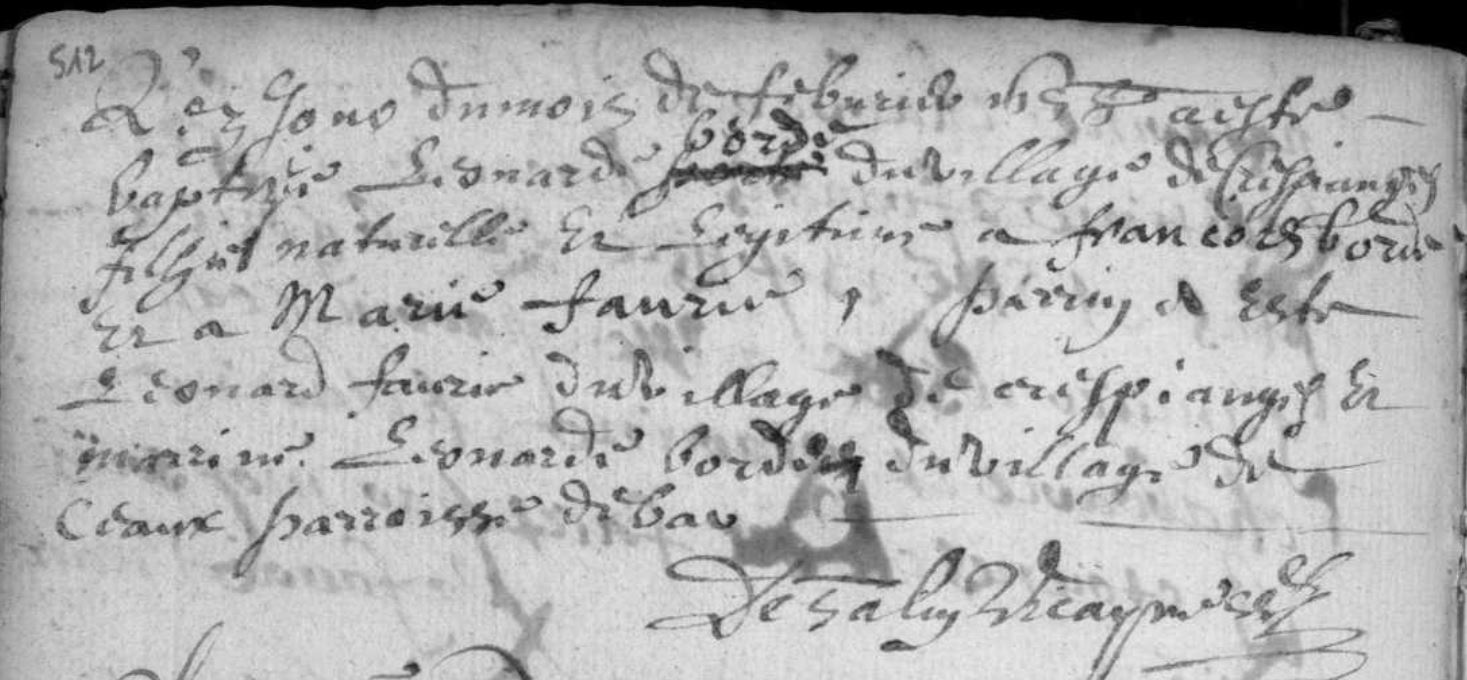 512
Le jour du mois de febvrier a esté
baptisée Leonarde borde du village de Crespianges
filhe naturelle Et Legitime a francois borde
Et a Marie faurie , parrin a Esté
Leonard faurie du village de crespianges Et
marrine Leonarde borde du village de
Ceaux parroisse de bar